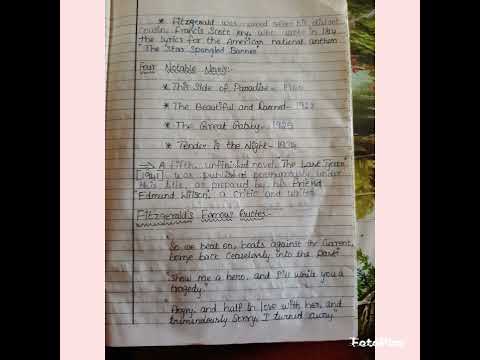 * Fitzgerald was named after his distant
cousin, Francis Scott Key, who wrote in 1814
the lyrics for the American national anthem
"The Star Spangled Banner"
Four Notable Novels:-
* This Side of Paradise -
* The Beautiful and Damned - 1922
* The Great Gatsby - 1925
* Tender Is the Night - 1934
→ A fifth, unfinished novel, The Last Tycoon
[1941] was published posthumously under
this title, as prepared by his friend
"Edmund Wilson", a critic and writer
Fitzgerald's Famous Quotes:-
So we beat on, boats against the current,
borne back ceaselessly into the past"
"Show me a hero, and I'll write you a
tragedy"
"Angry, and half in love with her, and
tremendously sorry, I turned away"